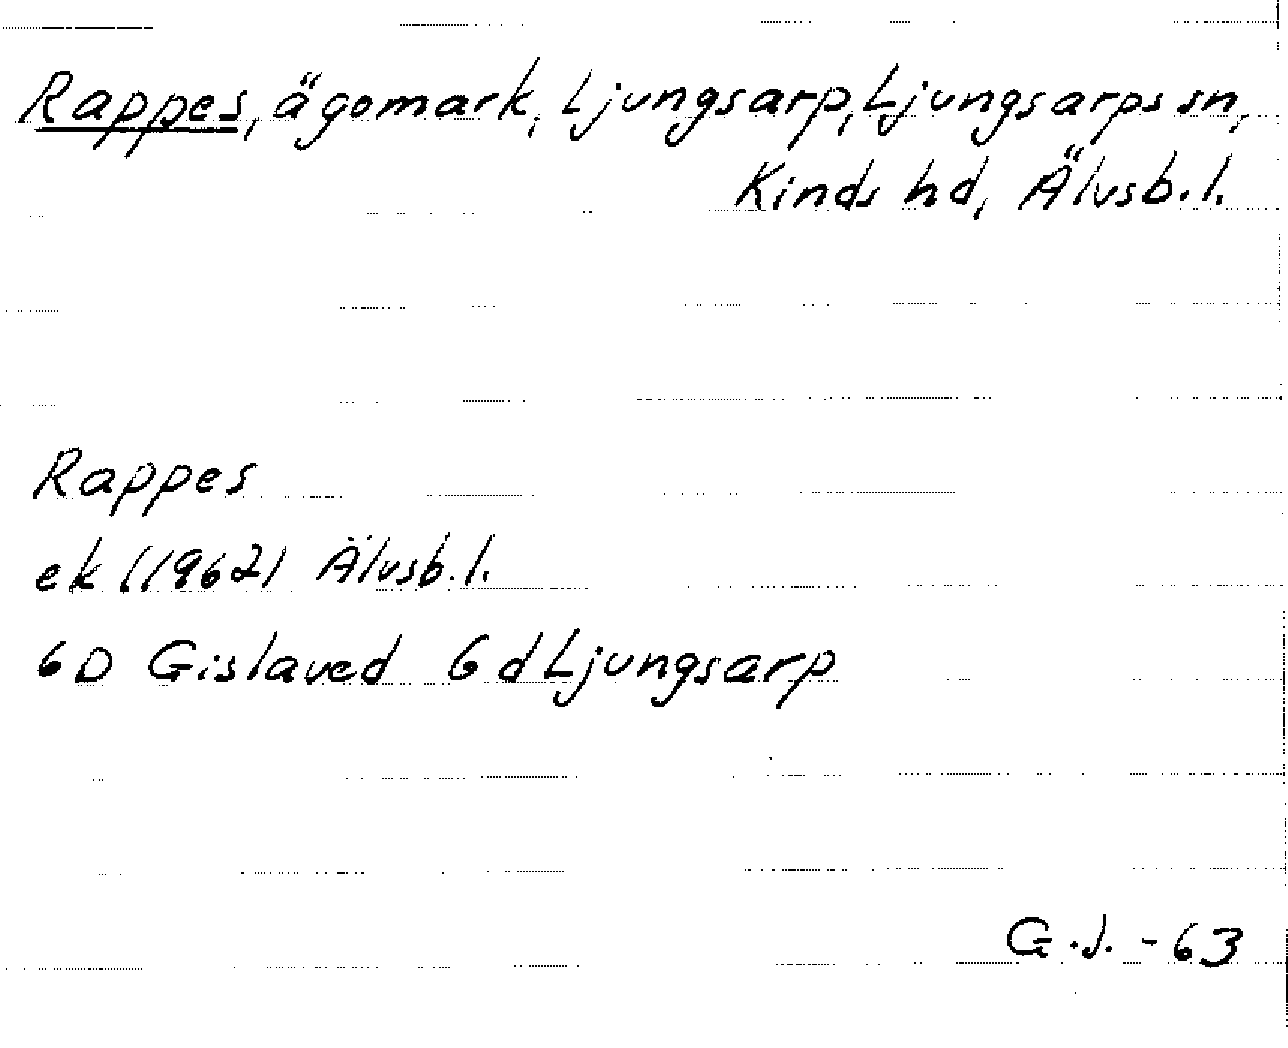 Rappes, ägomark, Ljungsarp, Ljungsarps sn,
Kinds hd, Älvsb. l.
Rappes
ek (1962) Älvsb. l.
6D Gislaved 6d Ljungsarp
G.J. -63